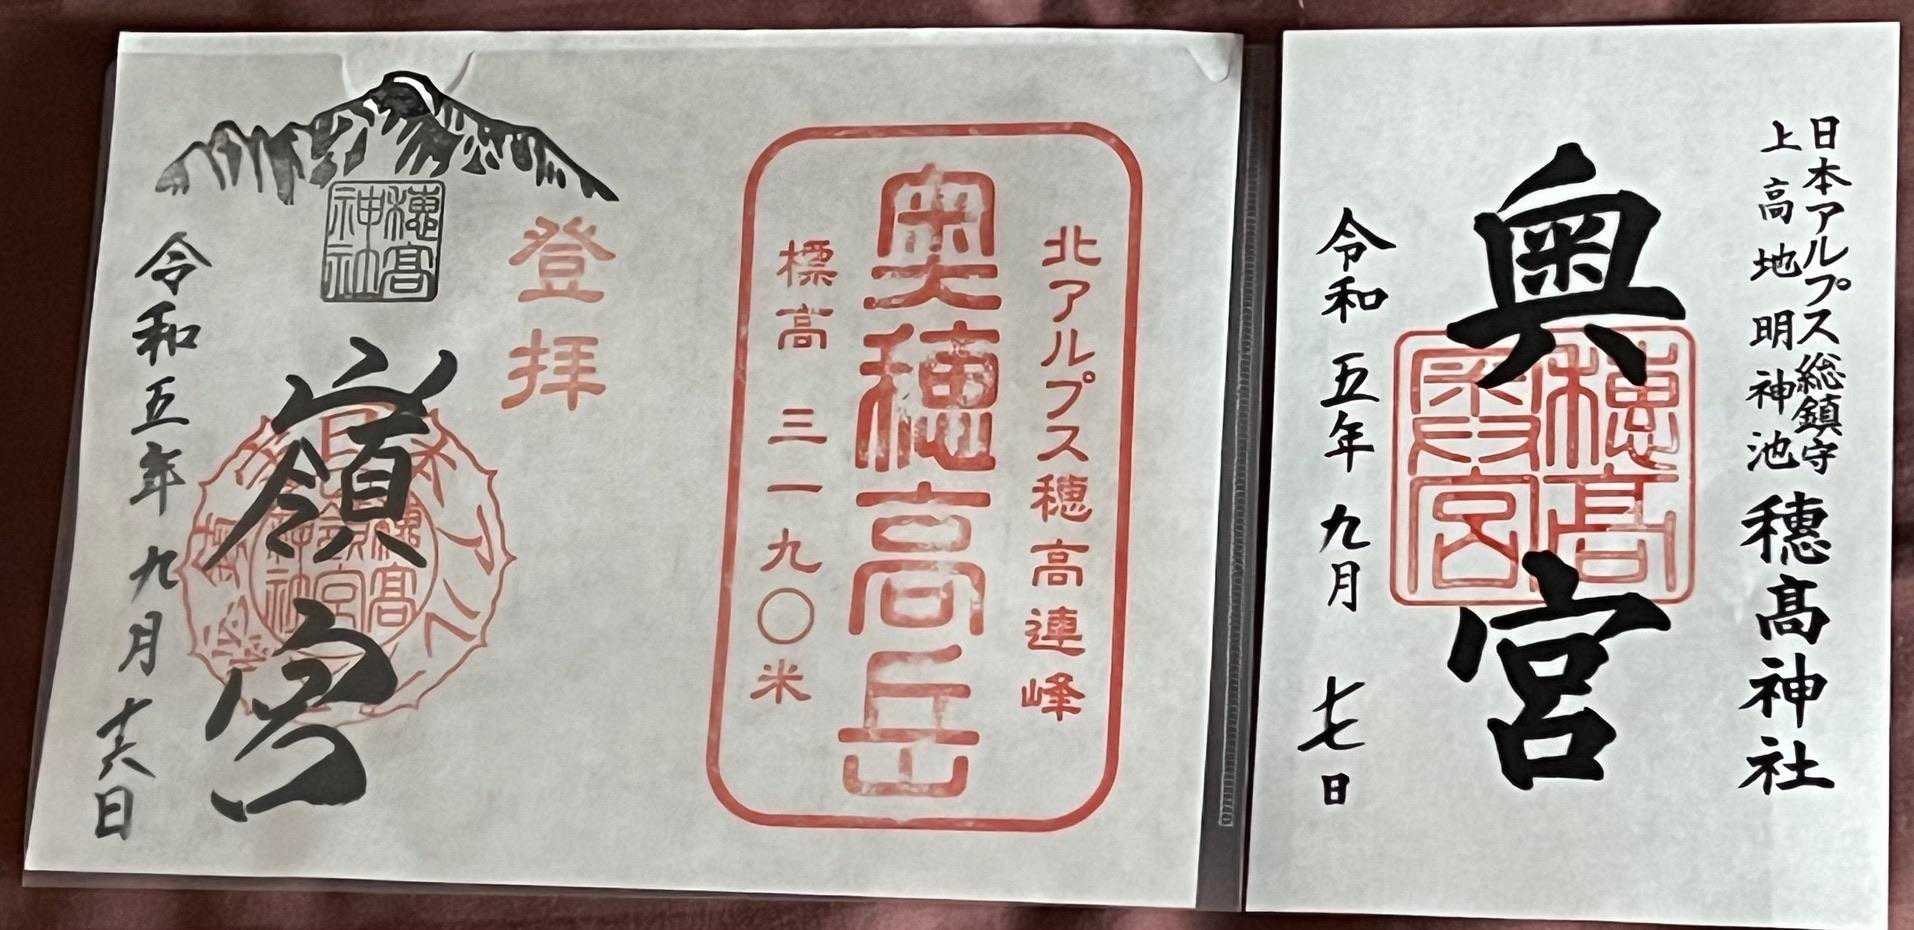 日本アルプス総鎮守
上高地明神池
穂髙神社
奥宮
令和五年九月七日
北アルプス穂高連峰
奥穂高岳
標高 三一九〇米
登拝
穂髙
神社
嶺宮
穂髙
嶺宮
神社
令和五年九月十六日